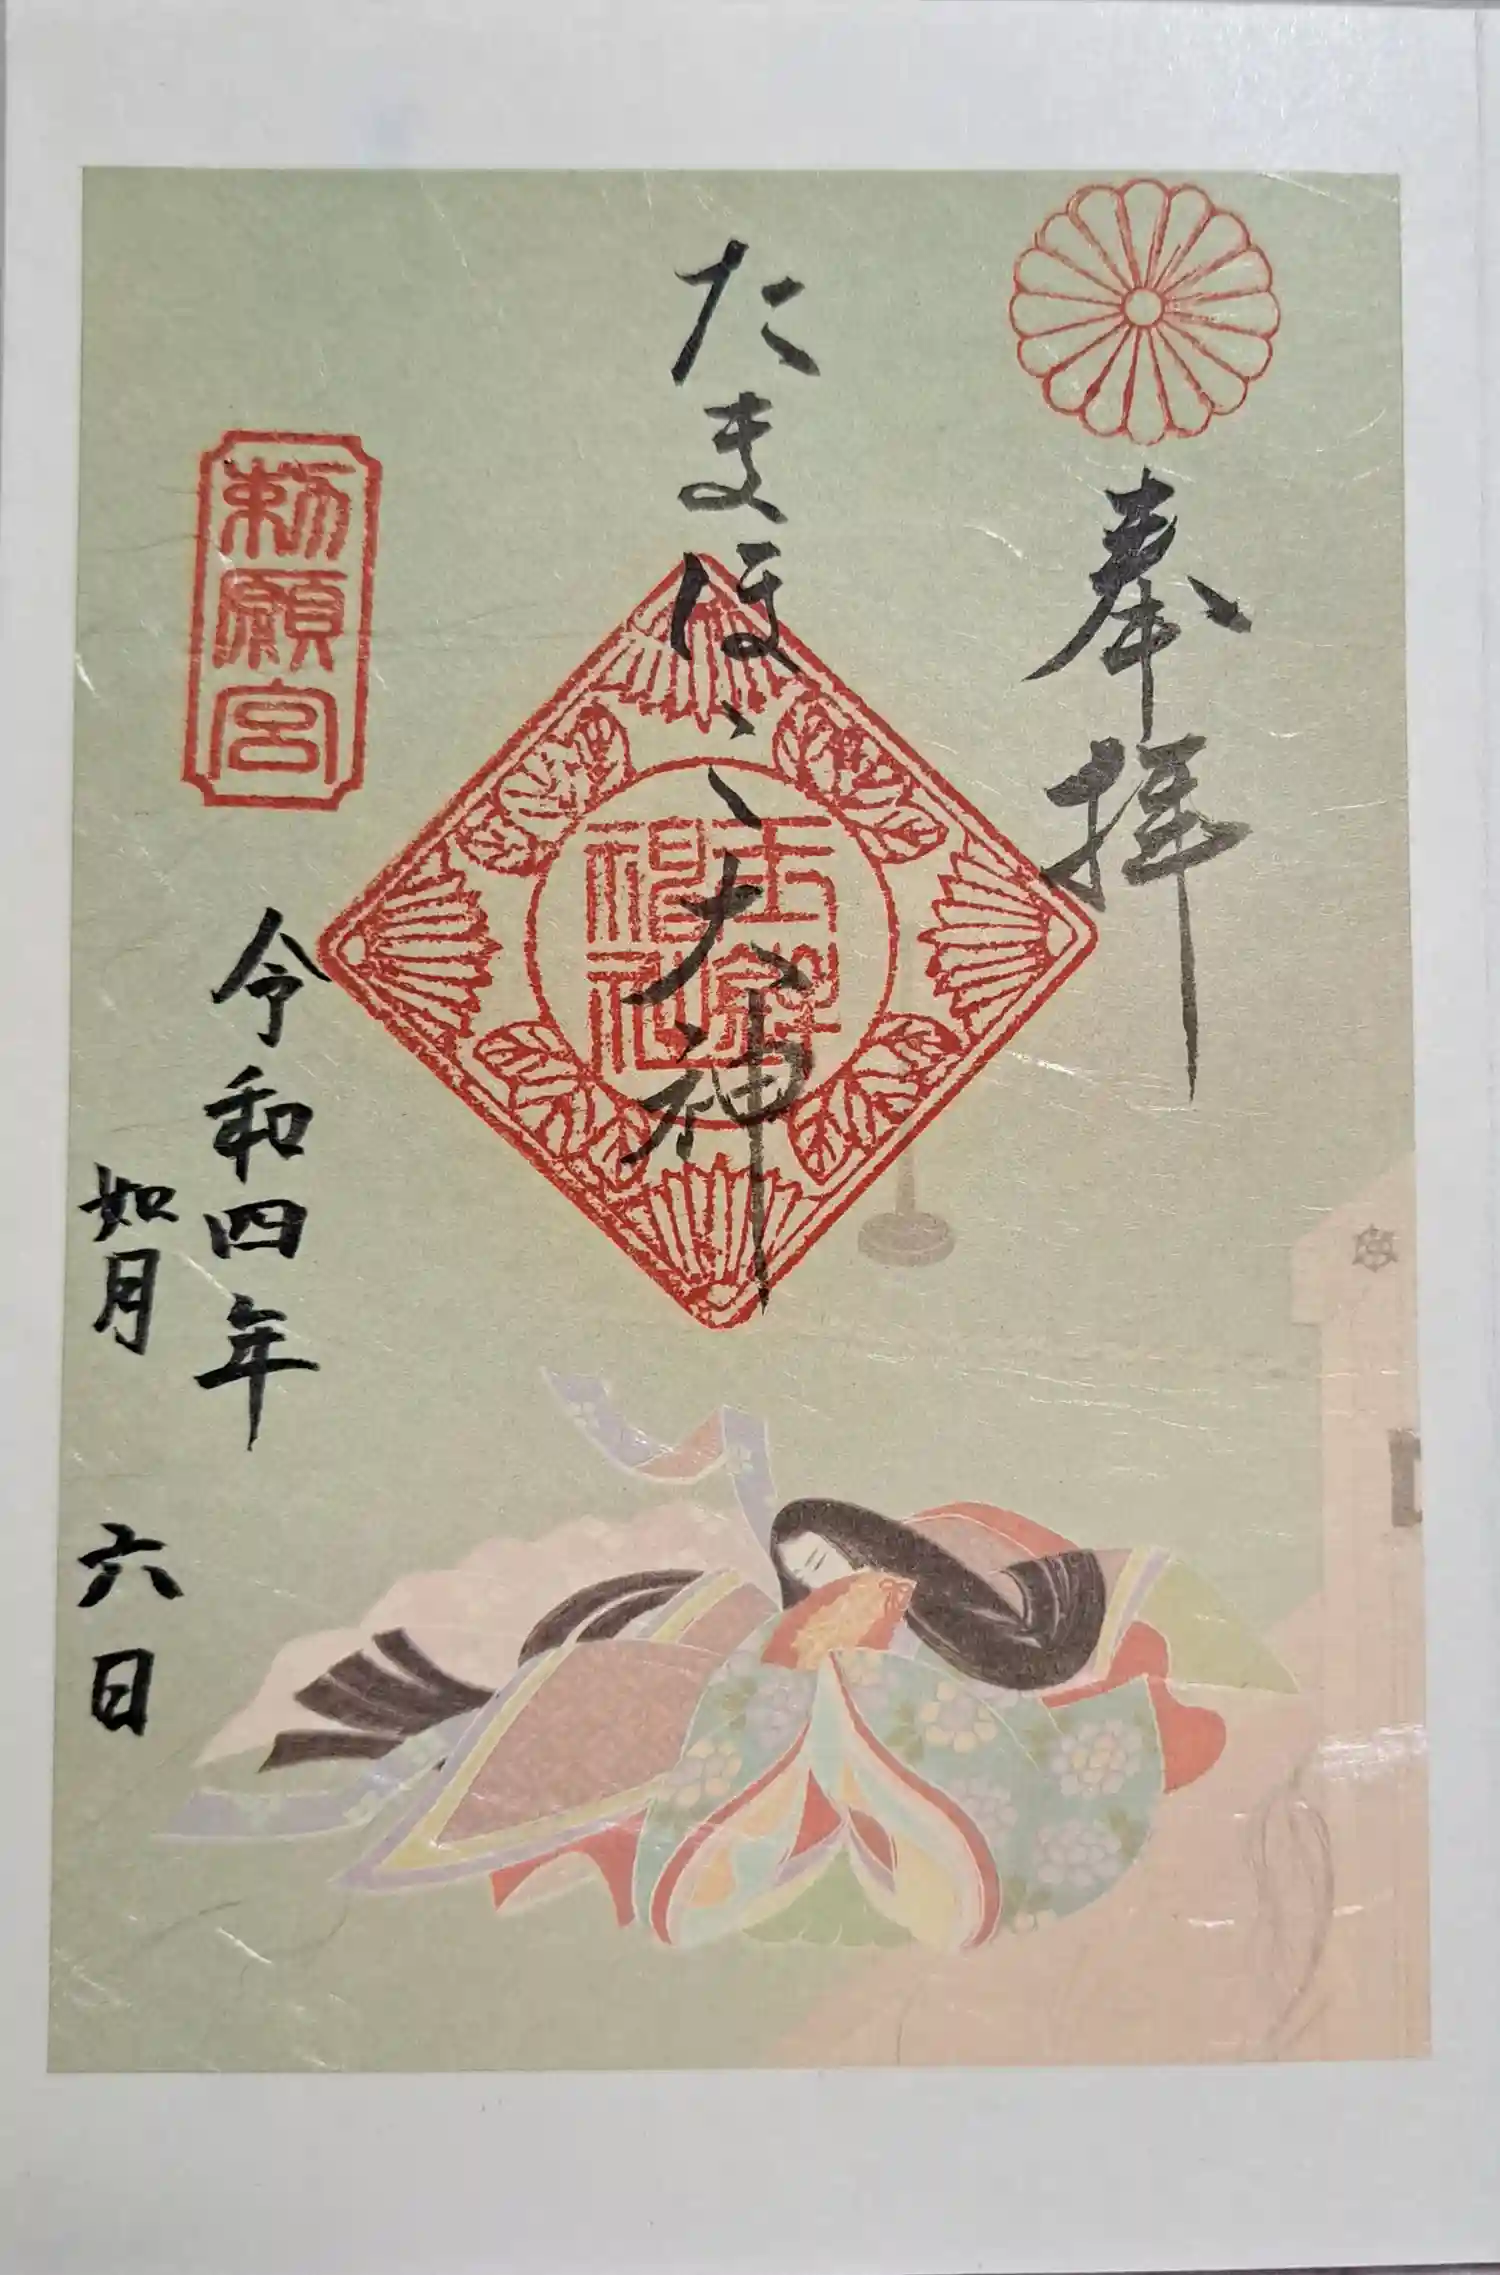 奉拝
たまほこ大神
玉鉾
神社
勅願宮
令和四年
如月 六日